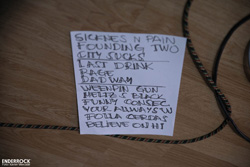 SICKNES N PAIN
FOUNDING TWO
CITY SUCKS
LAST DRINK
RAGE
DAD WAY
WEEPIN GUN
BLACK
FUNNY CONSEC
YOUR ALWAYS IN
FOLLA CERDAS
BELIEVE ON HI
ENDERROCK